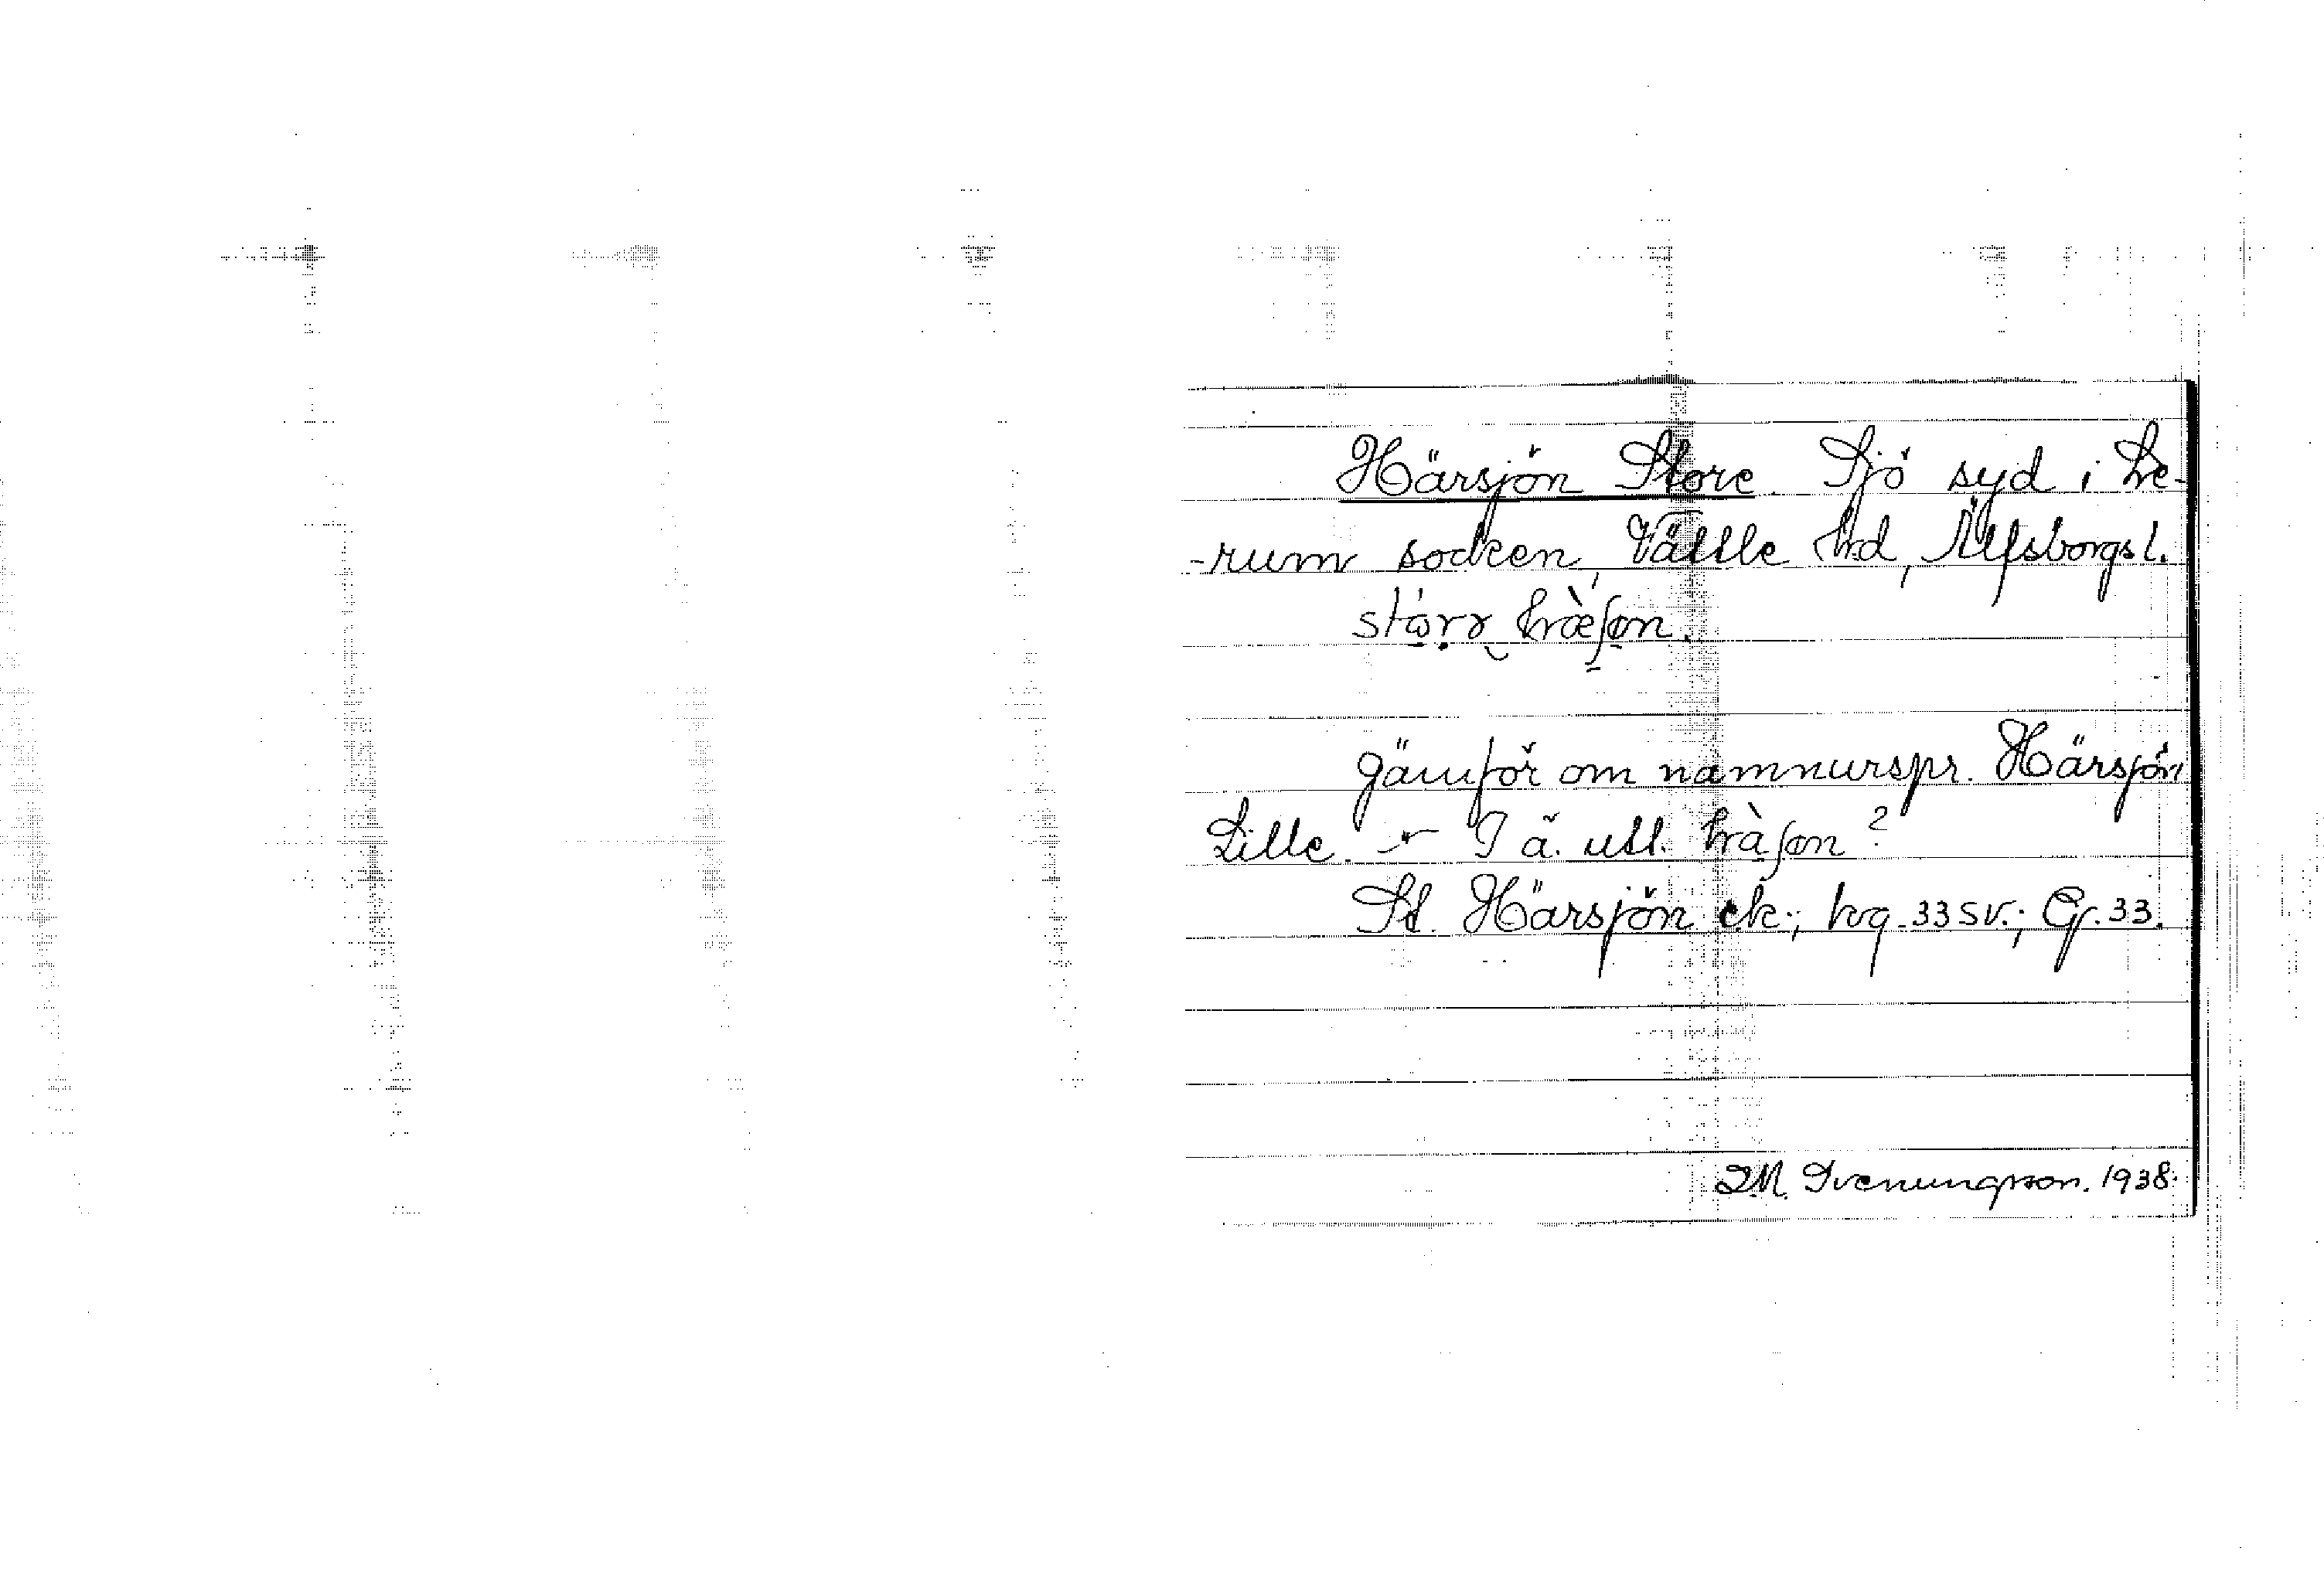 Härsjön Store. Sjö syd i Le-
-rum socken, Vättle hd, Älfsborgs l.
Jämför om namnurspr. Härsjön
Lille. - I ä. utt.
St. Härsjön ek.; hg 33 SV.; Gr. 33.
Svenungsson. 1938.